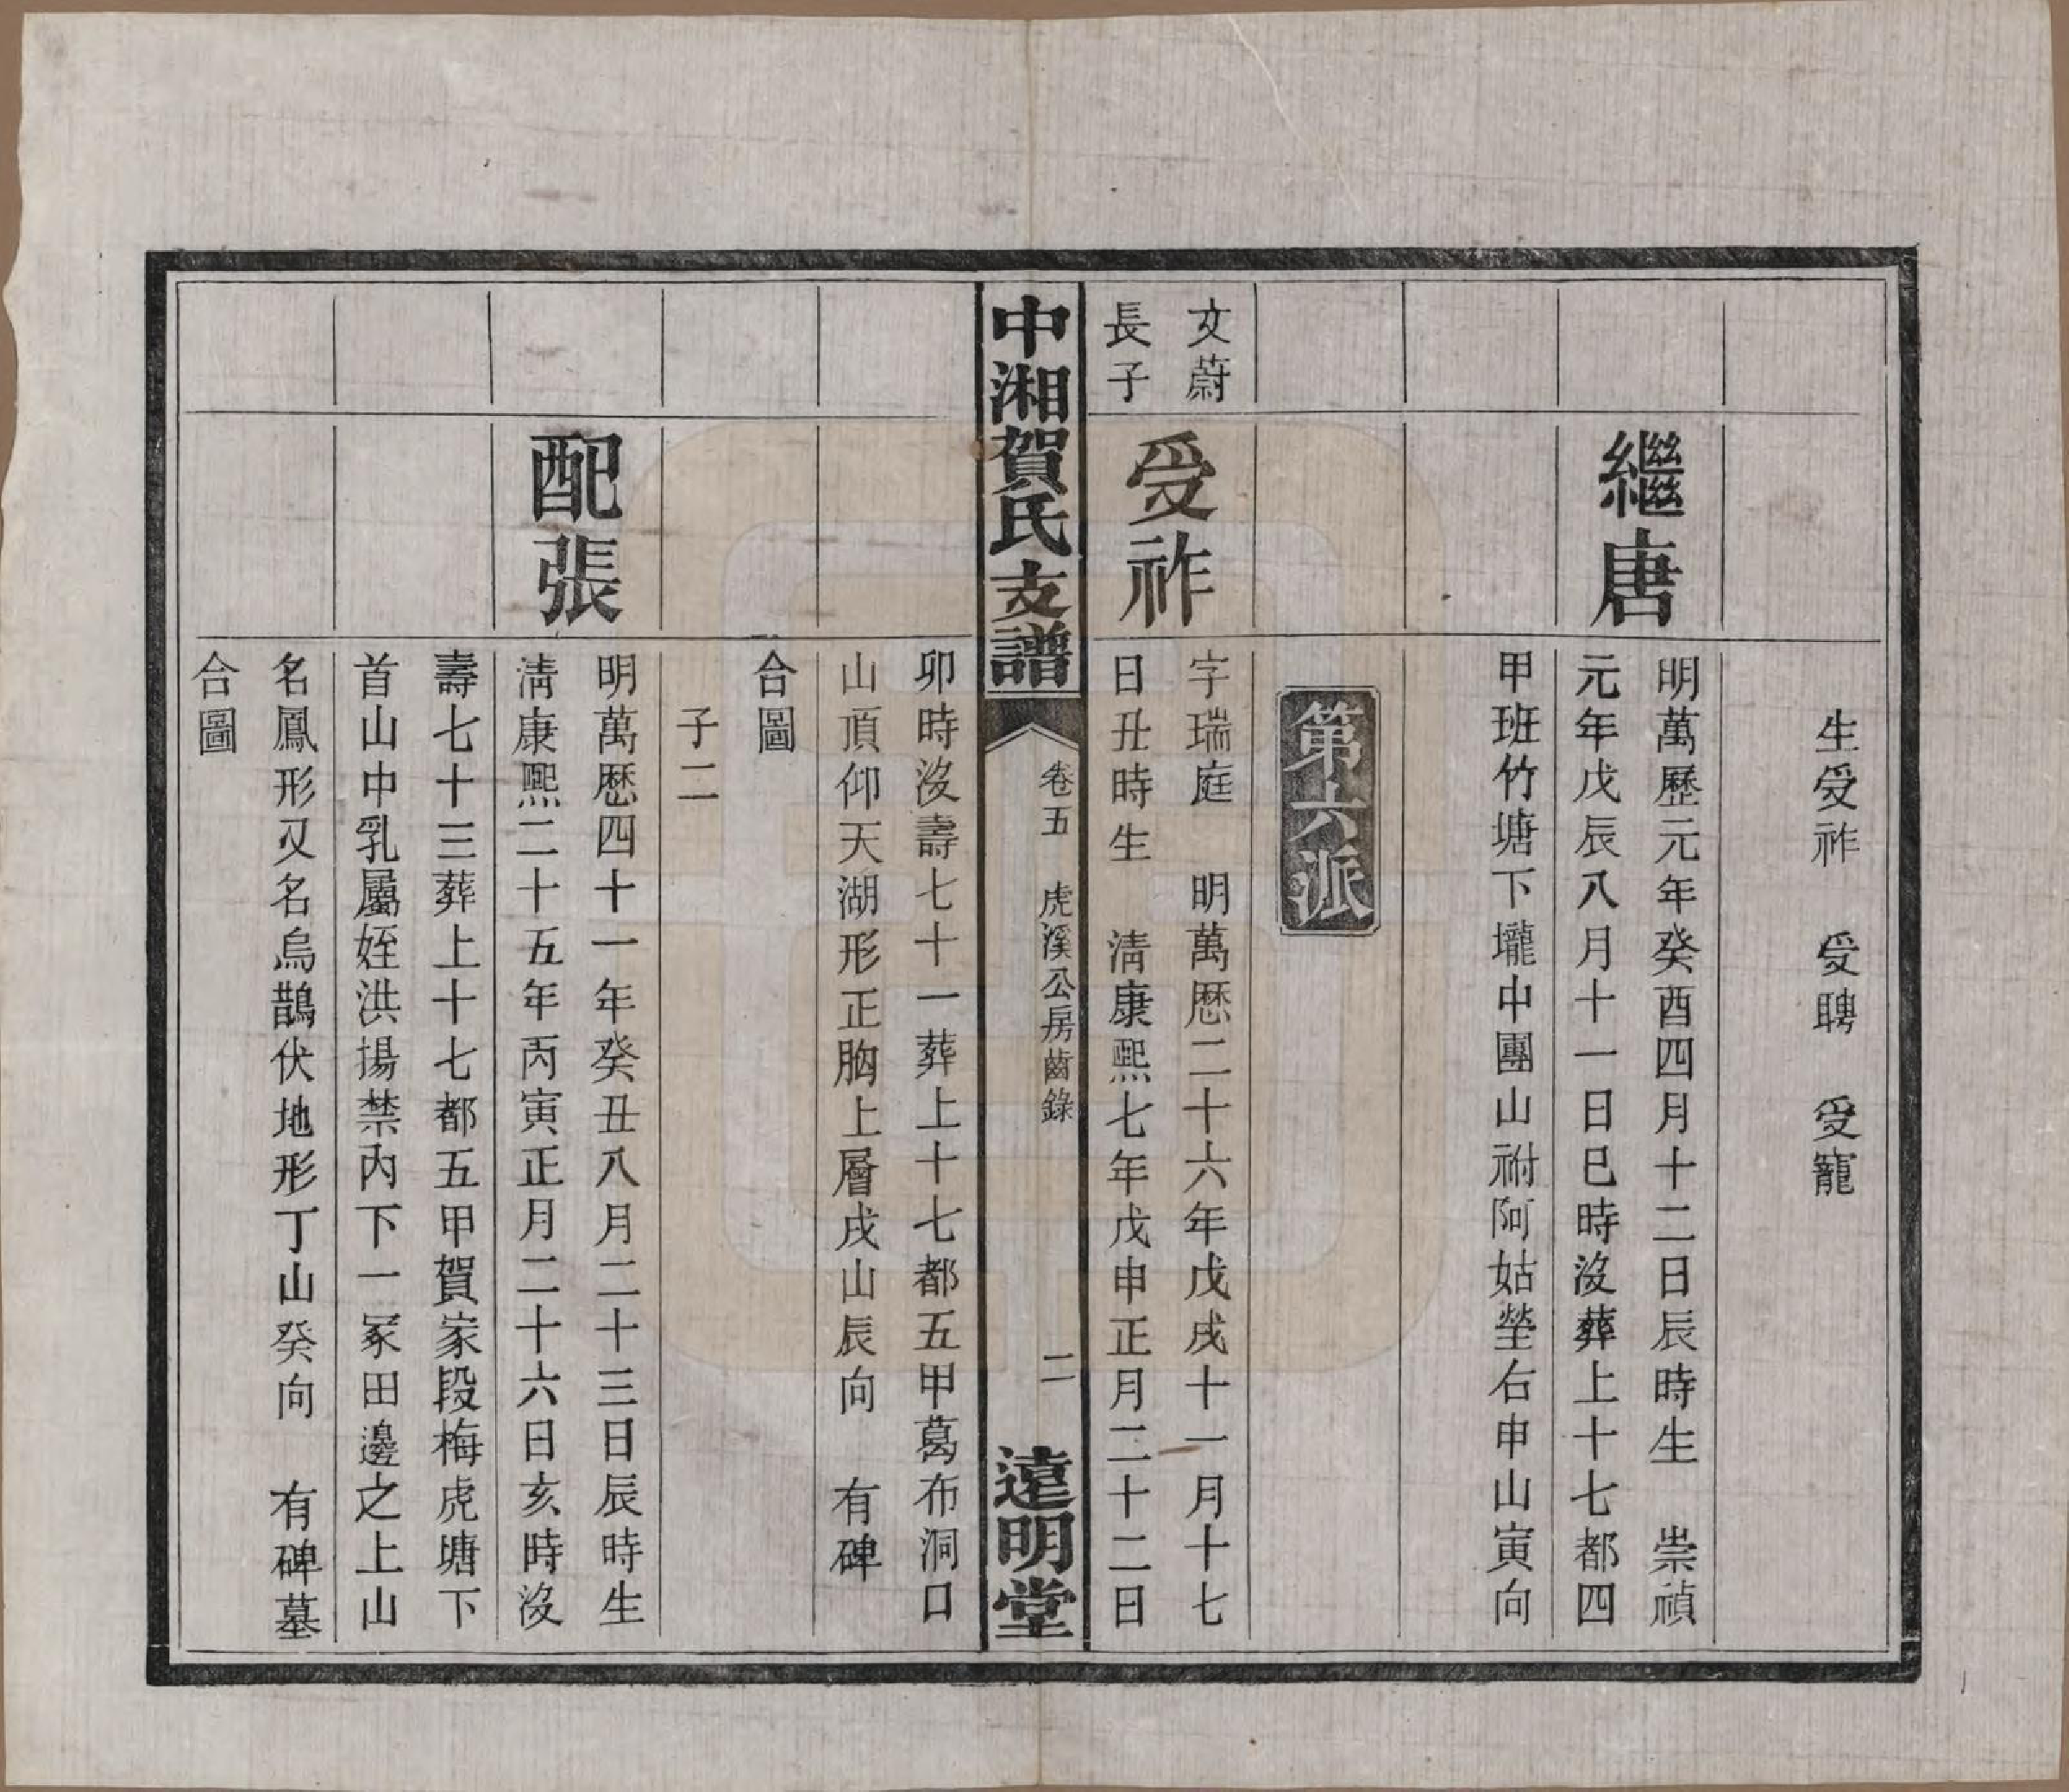 生受祚　受聘　受寵
繼唐
明萬歷元年癸酉四月十二日辰時生　崇禎
元年戊辰八月十一日巳時沒葬上十七都四
甲班竹塘下壠中團山祔阿姑塋右申山寅向
第六派
文蔚
長子
受祚
字瑞庭　明萬厯二十六年戊戌十一月十七
日丑時生　淸康熙七年戊申正月二十二日
中湘賀氏支譜
卷五　虎溪公房齒錄
二
遠明堂
卯時沒壽七十一葬上十七都五甲葛布洞口
山頂仰天湖形正胸上層戌山辰向　有碑
合圖
子二
配張
明萬厯四十一年癸丑八月二十三日辰時生
淸康熙二十五年丙寅正月二十六日亥時沒
壽七十三葬上十七都五甲賀家段梅虎塘下
首山中乳屬姪洪揚禁內下一冢田邊之上山
名鳳形又名烏鵲伏地形丁山癸向　有碑墓
合圖